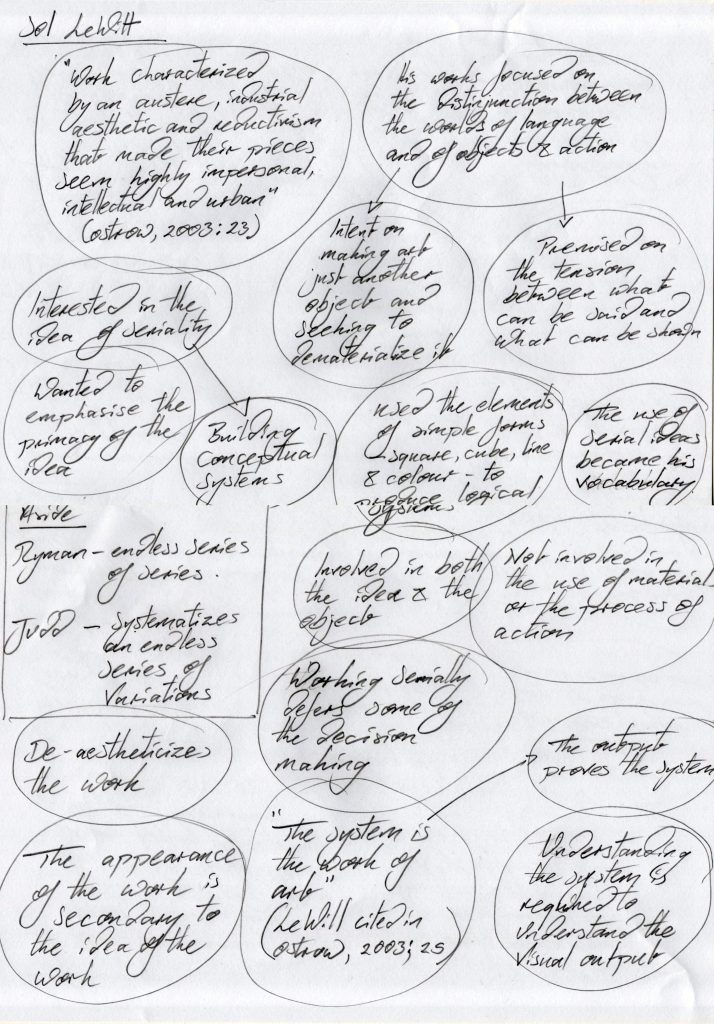 Sol LeWitt
"Work characterized
by an austere, industrial
aesthetic and reductivism
that made their pieces
seem highly impersonal,
intellectual and urban"
(Ostrow, 2003:23)
His works focused on
the distinjunction between
the worlds of language
and of objects & action
Intent on
making art
just another
object and
seeking to
dematerialize it
Premised on
the tension
between what
can be said and
what can be shown
Interested in the
idea of seriality
Wanted to
emphasise the
primacy of the
idea
Building
conceptual
systems
used the elements
of simple forms
- square, cube, line
& colour - to
produce logical
systems
The use of
serial ideas
became his
vocabulary
Aside
Ryman - endless series
of series.
Judd - systematizes
an endless
series of
variations
Involved in both
the idea & the
object
Not involved in
the use of material
or the process of
action
Working serially
defers some of
the decision
making
De-aestheticizes
the work
The output
proves the system
The appearance
of the work is
secondary to
the idea of the
work
"The system is
the work of
art"
(LeWill cited in
Ostrow, 2003; 25
Understanding
the system is
required to
understand the
visual output